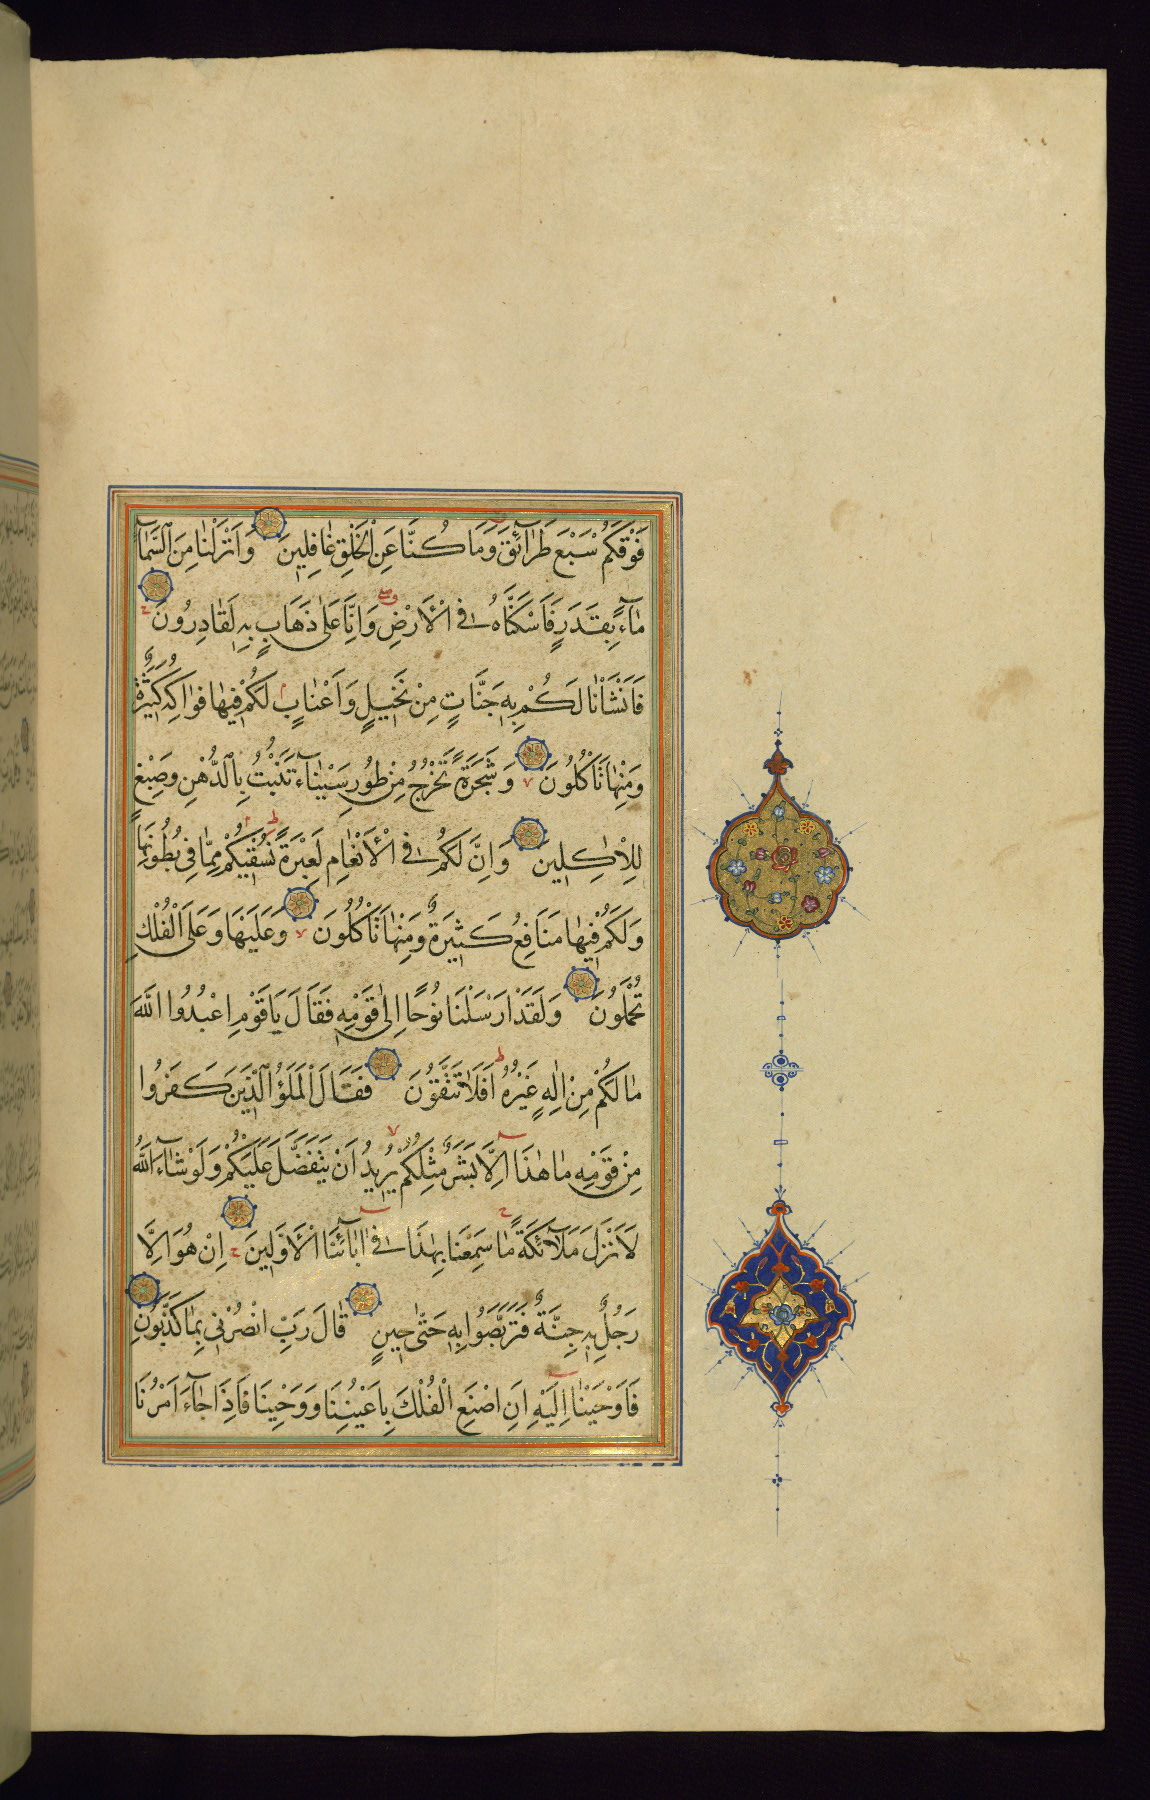 فَوْقَكُمْ سَبْعَ طَرَآئِقَ وَمَا كُنَّا عَنِ الْخَلْقِ غَافِلِينَ وَاَنْزَلْنَا مِنَ السَّمَآءِ
مَآءً بِقَدَرٍ فَاَسْكَنَّاهُ فِى الْاَرْضِ وَاِنَّا عَلٰى ذَهَابٍ بِهِ لَقَادِرُونَ
فَاَنْشَاْنَا لَكُمْ بِهِ جَنَّاتٍ مِنْ نَخِيلٍ وَاَعْنَابٍ لَكُمْ فِيهَا فَوَاكِهُ كَثِيرَةٌ
وَمِنْهَا تَاْكُلُونَ وَشَجَرَةً تَخْرُجُ مِنْ طُورِ سَيْنَآءَ تَنْبُتُ بِالدُّهْنِ وَصِبْغٍ
لِلْاٰكِلِينَ وَاِنَّ لَكُمْ فِى الْاَنْعَامِ لَعِبْرَةً نُسْقِيكُمْ مِمَّا فِى بُطُونِهَا
وَلَكُمْ فِيهَا مَنَافِعُ كَثِيرَةٌ وَمِنْهَا تَاْكُلُونَ وَعَلَيْهَا وَعَلَى الْفُلْكِ
تُحْمَلُونَ وَلَقَدْ اَرْسَلْنَا نُوحًا اِلٰى قَوْمِهِ فَقَالَ يَا قَوْمِ اعْبُدُوا اللّٰهَ
مَا لَكُمْ مِنْ اِلٰهٍ غَيْرُهُ اَفَلَا تَتَّقُونَ فَقَالَ الْمَلَؤُا الَّذِينَ كَفَرُوا
مِنْ قَوْمِهِ مَا هٰذَآ اِلَّا بَشَرٌ مِثْلُكُمْ يُرِيدُ اَنْ يَتَفَضَّلَ عَلَيْكُمْ وَلَوْ شَآءَ اللّٰهُ
لَاَنْزَلَ مَلَآئِكَةً مَا سَمِعْنَا بِهٰذَا فِىٓ اٰبَآئِنَا الْاَوَّلِينَ اِنْ هُوَ اِلَّا
رَجُلٌ بِهِ جِنَّةٌ فَتَرَبَّصُوا بِهِ حَتّٰى حِينٍ قَالَ رَبِّ انْصُرْنِى بِمَا كَذَّبُونِ
فَاَوْحَيْنَآ اِلَيْهِ اَنِ اصْنَعِ الْفُلْكَ بِاَعْيُنِنَا وَوَحْيِنَا فَاِذَا جَآءَ اَمْرُنَا